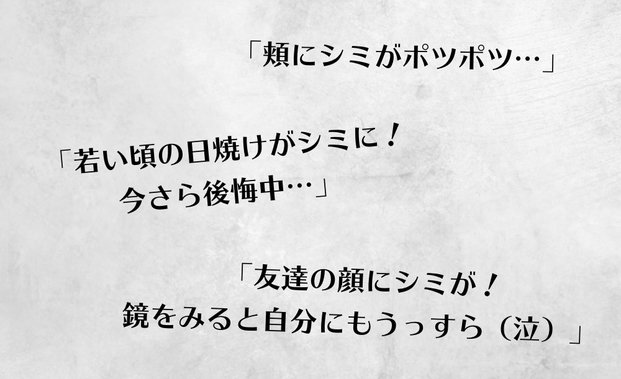 「頬にシミがポツポツ…」
「若い頃の日焼けがシミに！
今さら後悔中…」
「友達の顔にシミが！
鏡をみると自分にもうっすら（泣）」